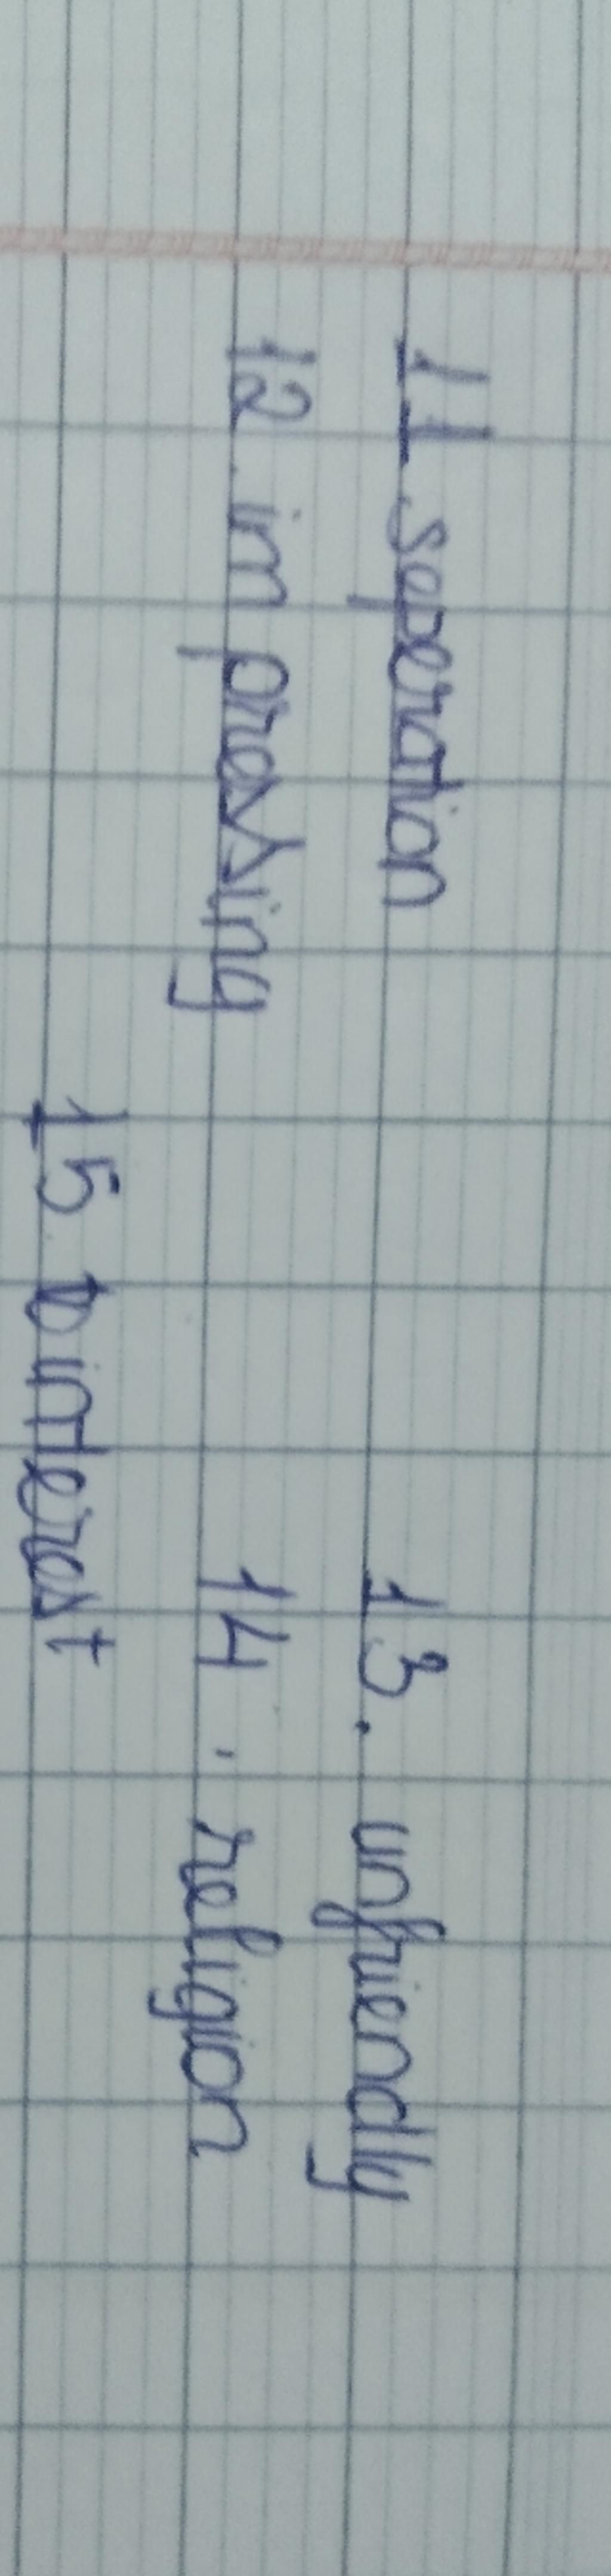 11 seperation 13. unfriendly
12. impressing 14. religion
15. interest